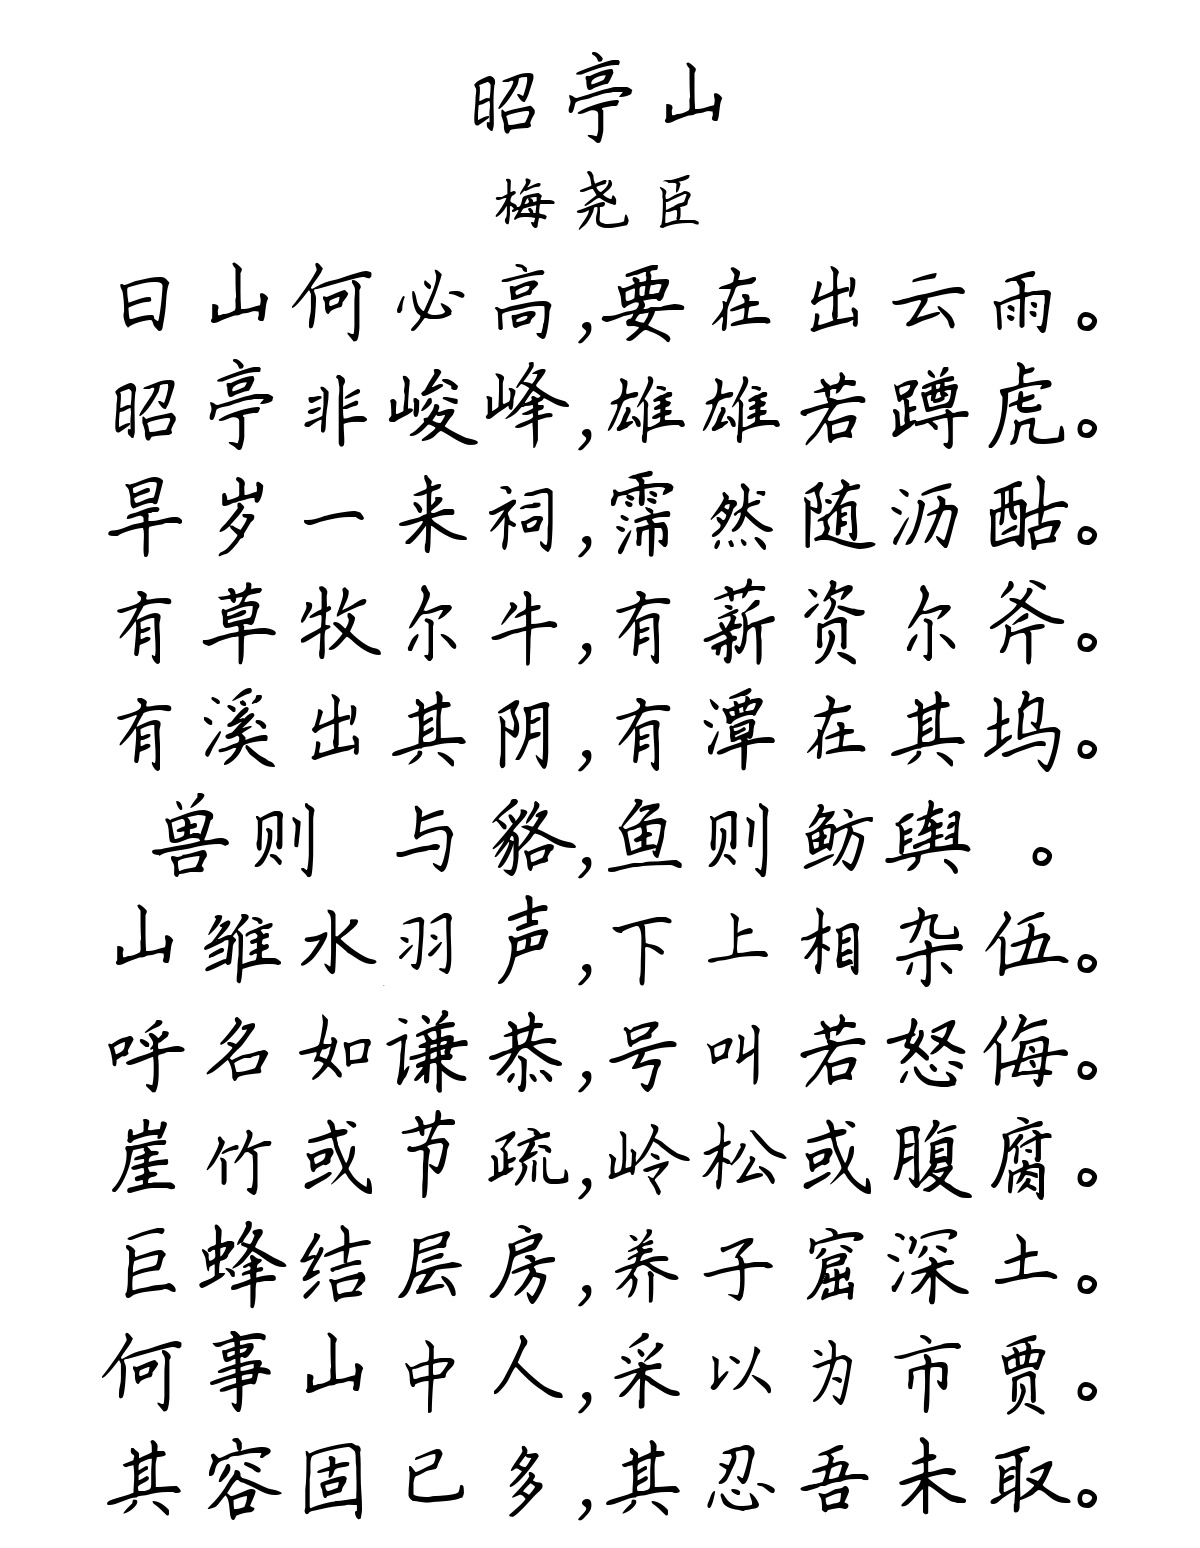 昭亭山
梅尧臣
曰山何必高,要在出云雨。
昭亭非峻峰,雄雄若蹲虎。
旱岁一来祠,霈然随沥酤。
有草牧尔牛,有薪资尔斧。
有溪出其阴,有潭在其坞。
兽则 与貉,鱼则鲂舆 。
山雏水羽声,下上相杂伍。
呼名如谦恭,号叫若怒侮。
崖竹或节疏,岭松或腹腐。
巨蜂结层房,养子窟深土。
何事山中人,采以为市贾。
其容固已多,其忍吾未取。